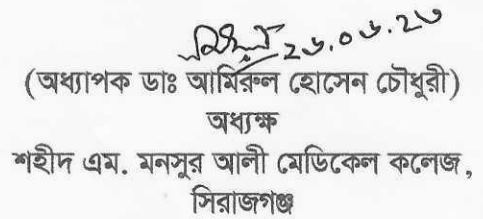 (অধ্যাপক ডাঃ আমিরুল হোসেন চৌধুরী)
অধ্যক্ষ
শহীদ এম. মনসুর আলী মেডিকেল কলেজ,
সিরাজগঞ্জ